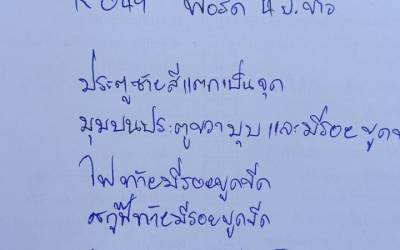 ฟอร์ด 4 ป.ขาว
ประตูซ้ายสีแตกเป็นจุด
มุมบนประตูขวาบุบ และมีรอยขูด
ไฟท้ายมีรอยขูดขีด
ท้ายมีรอยขูดขีด